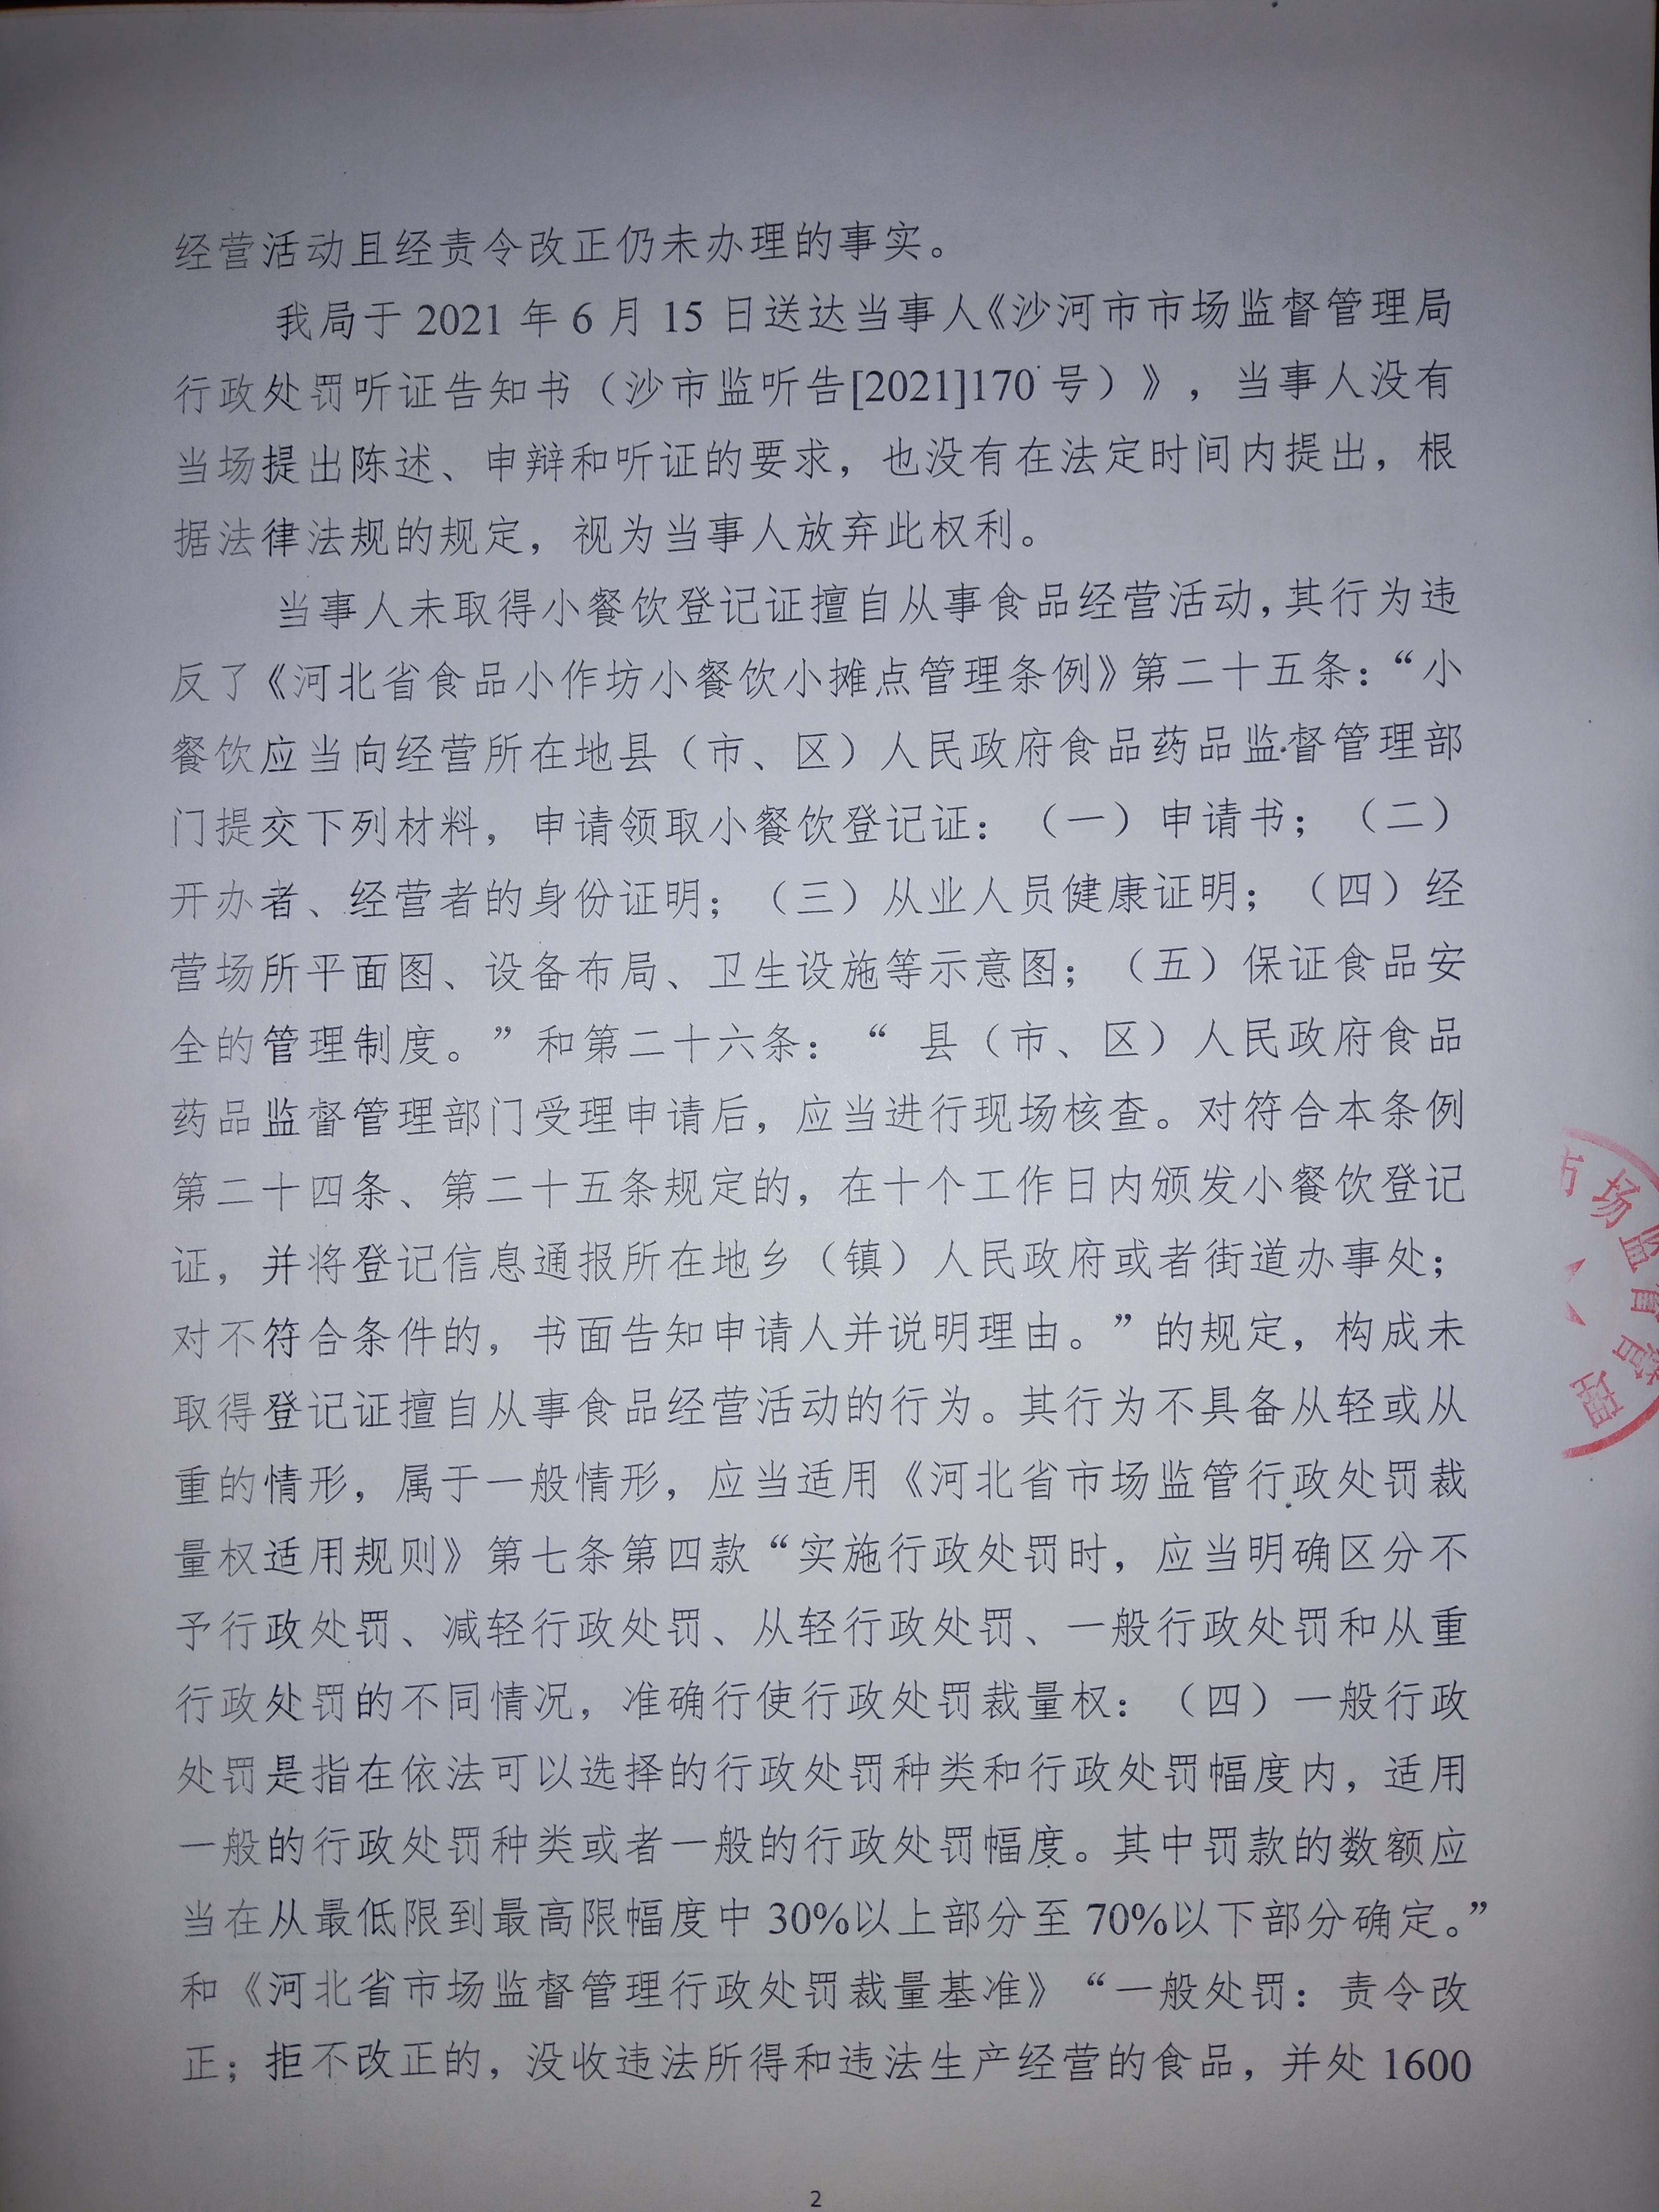 经营活动且经责令改正仍未办理的事实。
我局于 2021 年 6 月 15 日送达当事人《沙河市市场监督管理局
行政处罚听证告知书（沙市监听告[2021]170 号）》，当事人没有
当场提出陈述、申辩和听证的要求，也没有在法定时间内提出，根
据法律法规的规定，视为当事人放弃此权利。
当事人未取得小餐饮登记证擅自从事食品经营活动，其行为违
反了《河北省食品小作坊小餐饮小摊点管理条例》第二十五条：“小
餐饮应当向经营所在地县（市、区）人民政府食品药品监督管理部
门提交下列材料，申请领取小餐饮登记证：（一）申请书；（二）
开办者、经营者的身份证明；（三）从业人员健康证明；（四）经
营场所平面图、设备布局、卫生设施等示意图；（五）保证食品安
全的管理制度。”和第二十六条：“ 县（市、区）人民政府食品
药品监督管理部门受理申请后，应当进行现场核查。对符合本条例
第二十四条、第二十五条规定的，在十个工作日内颁发小餐饮登记
证，并将登记信息通报所在地乡（镇）人民政府或者街道办事处；
对不符合条件的，书面告知申请人并说明理由。”的规定，构成未
取得登记证擅自从事食品经营活动的行为。其行为不具备从轻或从
重的情形，属于一般情形，应当适用《河北省市场监管行政处罚裁
量权适用规则》第七条第四款“实施行政处罚时，应当明确区分不
予行政处罚、减轻行政处罚、从轻行政处罚、一般行政处罚和从重
行政处罚的不同情况，准确行使行政处罚裁量权：（四）一般行政
处罚是指在依法可以选择的行政处罚种类和行政处罚幅度内，适用
一般的行政处罚种类或者一般的行政处罚幅度。其中罚款的数额应
当在从最低限到最高限幅度中 30%以上部分至 70%以下部分确定。”
和《河北省市场监督管理行政处罚裁量基准》“一般处罚：责令改
正；拒不改正的，没收违法所得和违法生产经营的食品，并处 1600
2
市场监督管理